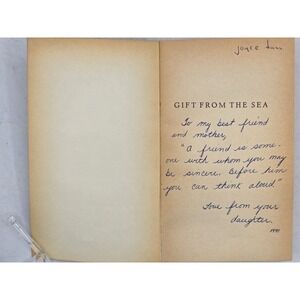 joyce
GIFT FROM THE SEA
To my best friend
and mother,
"A friend is some-
one with whom you may
be sincere. Before him
you can think aloud"
Love from your
daughter.